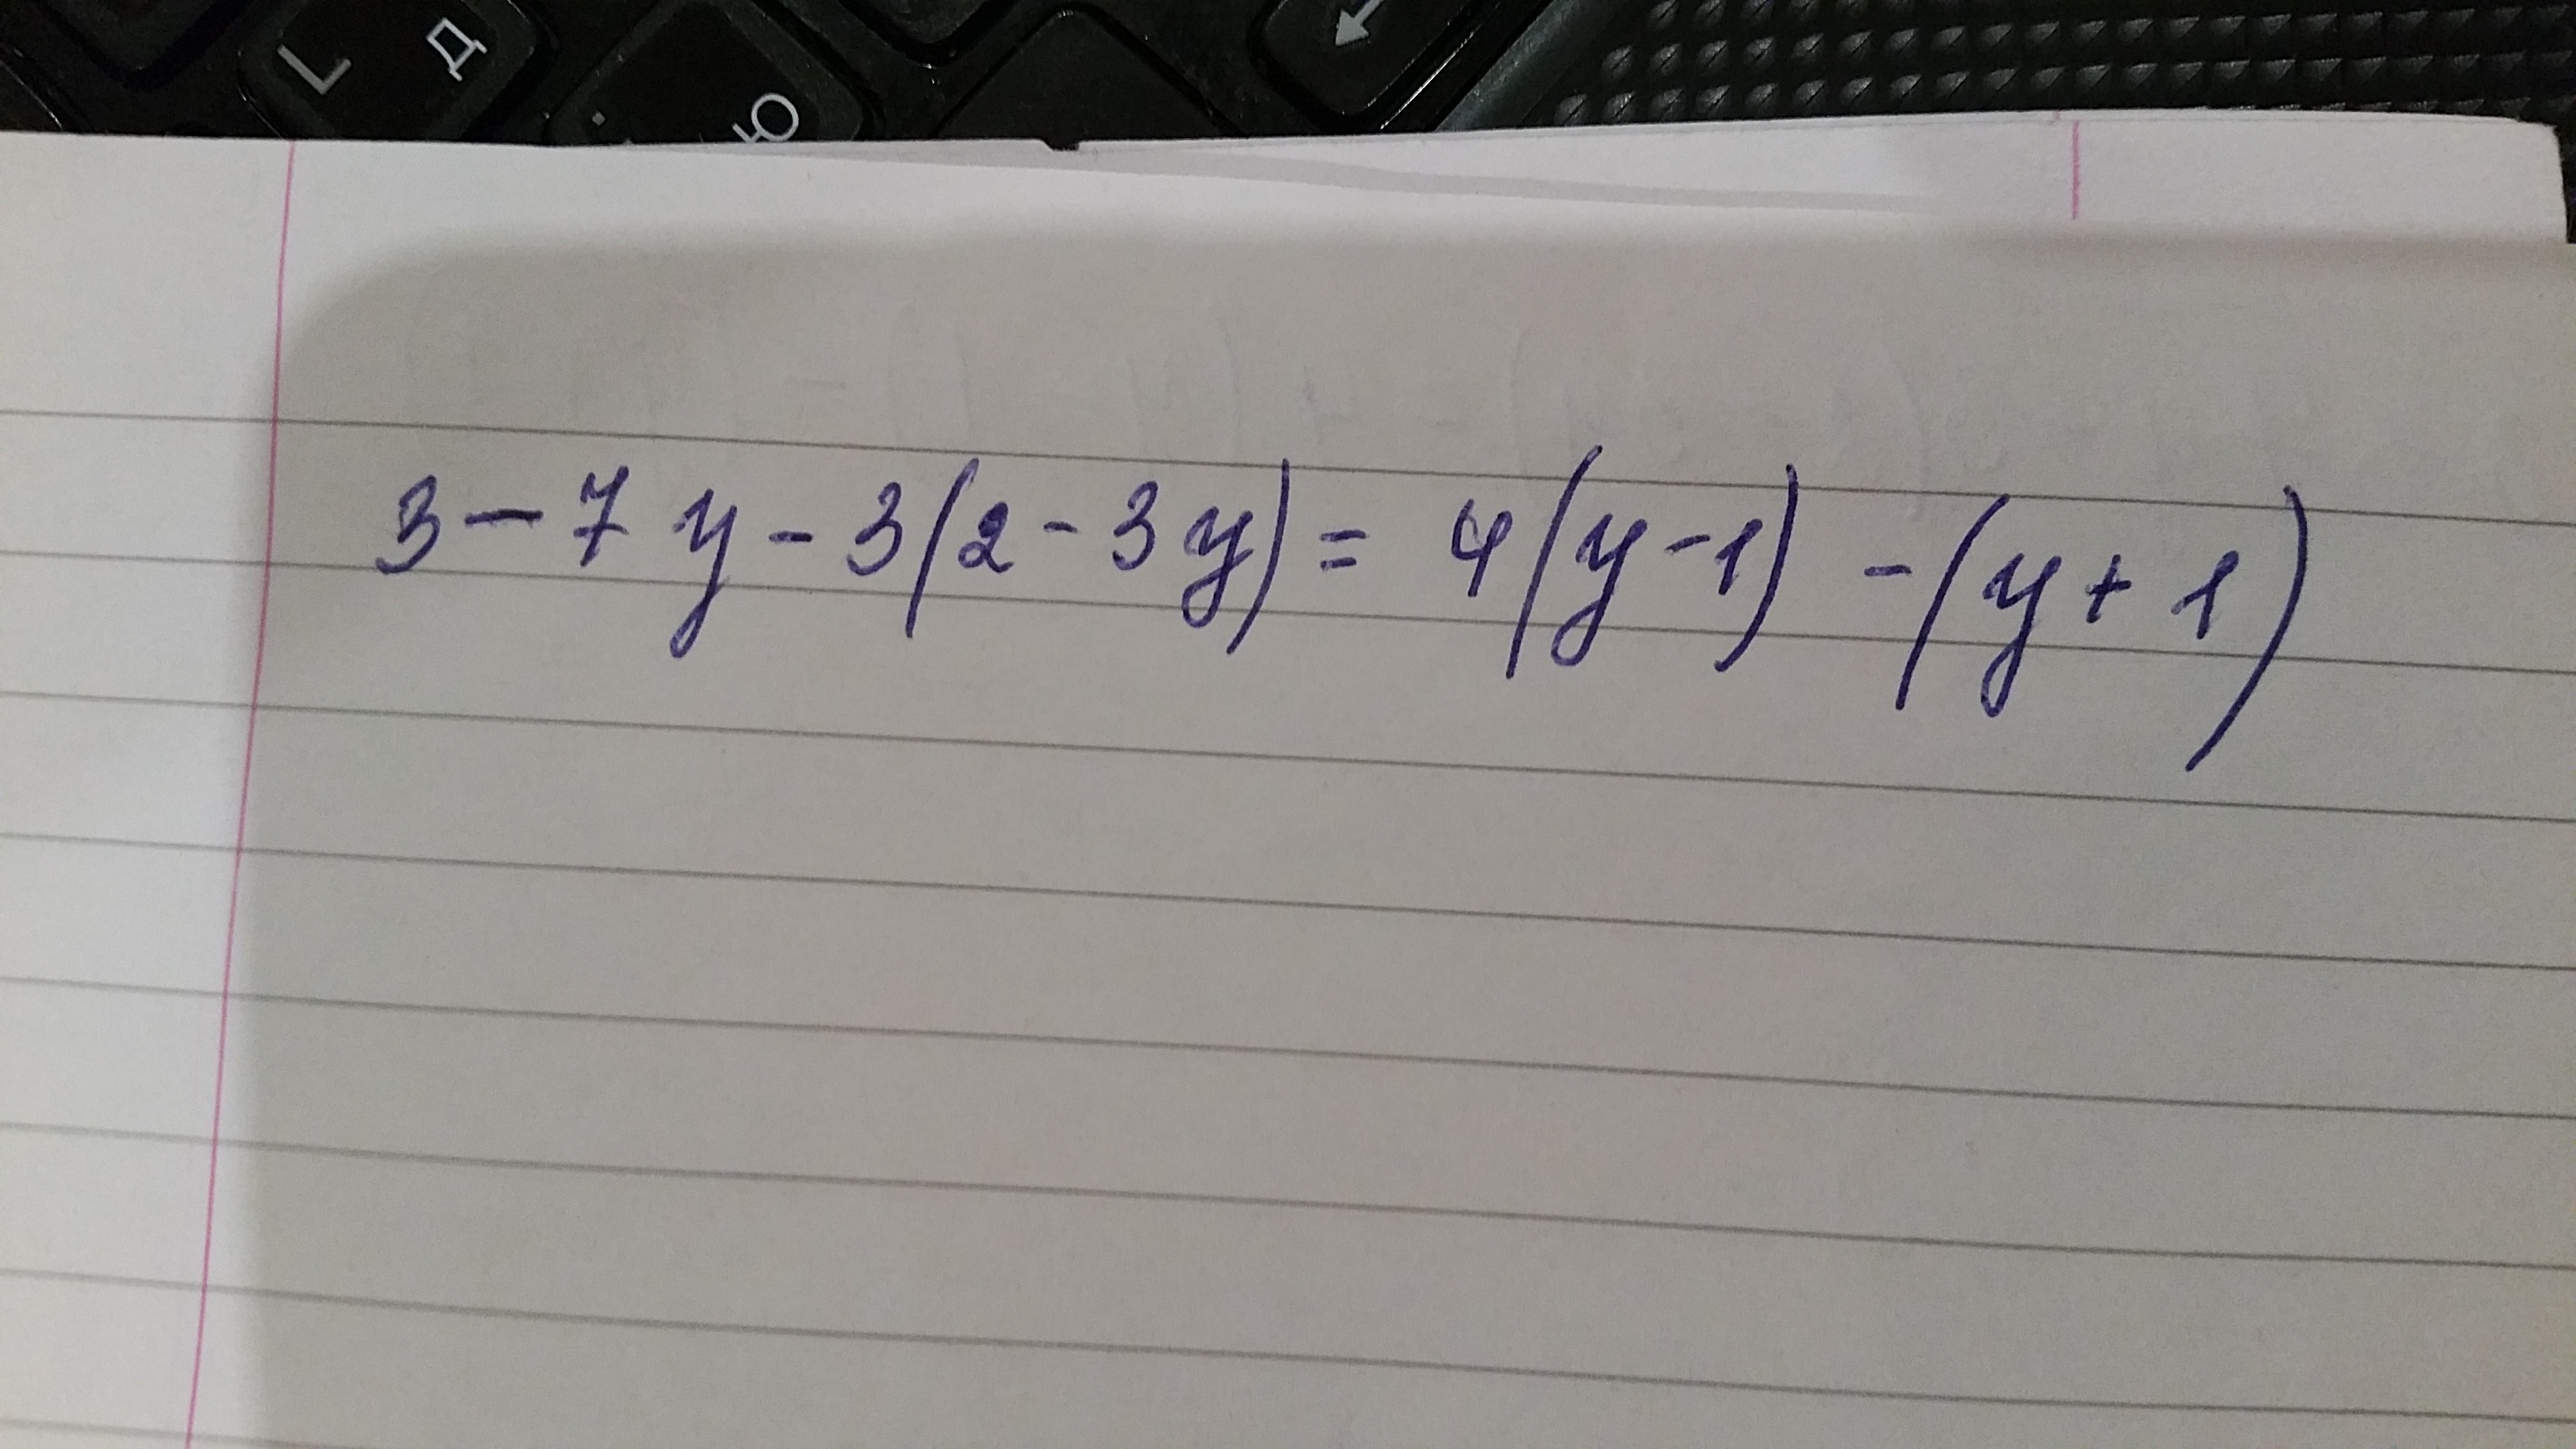 L Д
Ю
3 - 7y - 3(2 - 3y) = 4(y - 1) - (y + 1)